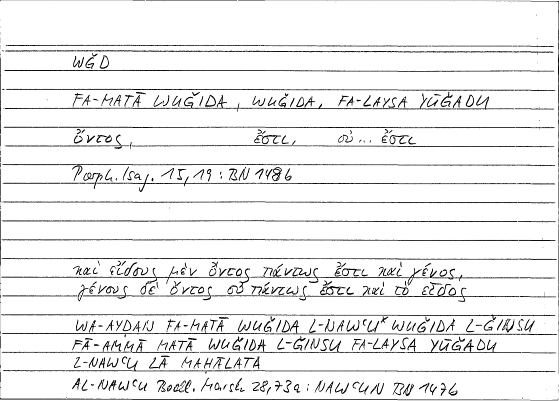 WǦD
FA-MATĀ WUǦIDA, WUǦIDA, FA-LAYSA YŪǦADU
ὄντος, ἔστι, οὐ... ἔστι
Porph. Isag. 15,19 : BN 148b
καὶ εἴδους μὲν ὄντος πάντως ἔστι καὶ γένος,
γένους δὲ ὄντος οὐ πάντως ἔστι καὶ τὸ εἶδος
WA-AYḌAN FA-MATĀ WUǦIDA L-NAWʿU* WUǦIDA L-ǦINSU
FA-AMMĀ MATĀ WUǦIDA L-ǦINSU FA-LAYSA YŪǦADU
L-NAWʿU LĀ MAḤĀLATA
AL-NAWʿU Bodl. Marsh 28,73a : NAWʿUN BN 147b